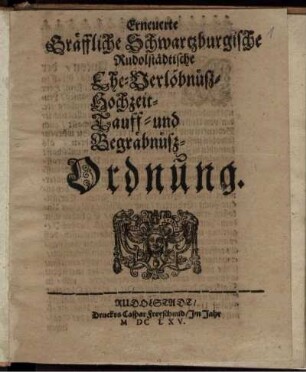 1
Erneuerte
Gräffliche Schwartzburgische
Rudolstädtische
Ehe-Verlöbnüß-
Hochzeit-
Tauff- und
Begräbnüsz-
Ordnung.
RUDOLSTADT/
Druckts Caspar Freyschmid/ Im Jahr
M DC LXV.